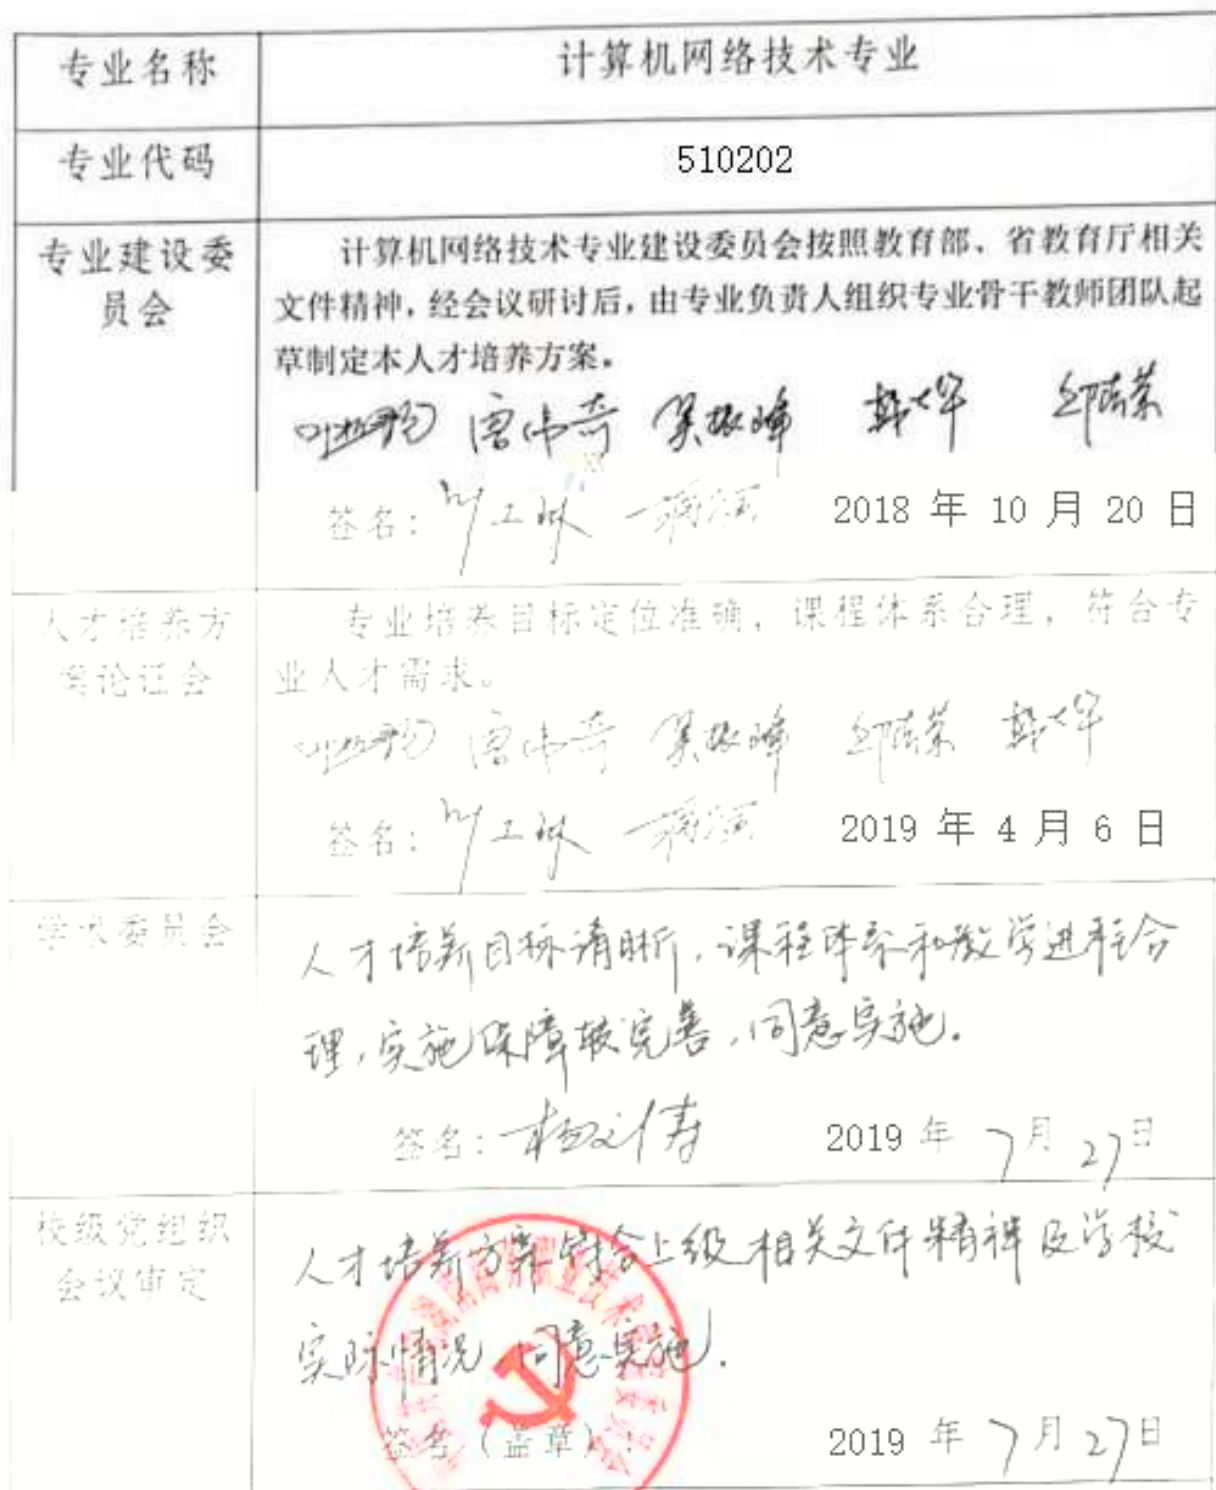 专业名称
计算机网络技术专业
专业代码
510202
专业建设委
员会
计算机网络技术专业建设委员会按照教育部、省教育厅相关
文件精神，经会议研讨后，由专业负责人组织专业骨干教师团队起
草制定本人才培养方案。
签名：
2018 年 10 月 20 日
人才培养方
案论证会
专业培养目标定位准确，课程体系合理，符合专
业人才需求。
签名：
2019 年 4 月 6 日
学术委员会
人才培养目标清晰，课程体系和教学进程合
理，实施保障较完善，同意实施。
签名：
2019 年 7 月 27 日
校级党组织
会议审定
人才培养方案符合上级相关文件精神及学校
实际情况，同意实施。
签名（盖章）：
2019 年 7 月 27 日